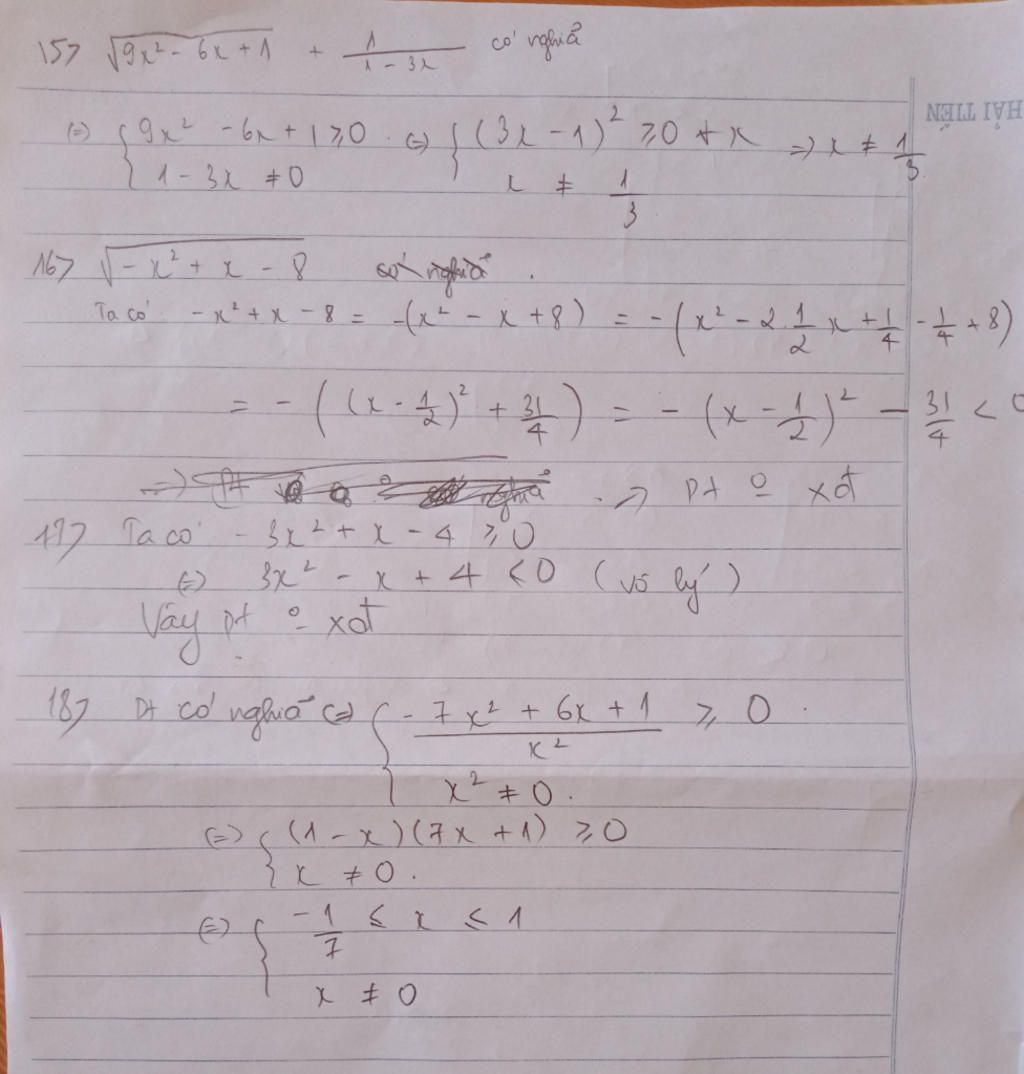 15> √(9x² - 6x + 1) + 1/(1 - 3x) có nghĩa
HẢI TIẾN
(=) { 9x² - 6x + 1 ≥ 0 (=) { (3x - 1)² ≥ 0 ∀x => x ≠ 1/3
1 - 3x ≠ 0 x ≠ 1/3
16> √(-x² + x - 8) có nghĩa.
Ta có -x² + x - 8 = -(x² - x + 8) = -(x² - 2.1/2 x + 1/4 - 1/4 + 8)
= - ((x - 1/2)² + 31/4) = - (x - 1/2)² - 31/4 < 0
=> Pt o xđ
17> Ta có - 3x² + x - 4 ≥ 0
(=) 3x² - x + 4 < 0 (vô lý)
Vậy pt o xđ
18> Pt có nghĩa (=) { (-7x² + 6x + 1)/x² ≥ 0.
x² ≠ 0.
(=) { (1 - x)(7x + 1) ≥ 0
x ≠ 0.
(=) { -1/7 ≤ x ≤ 1
x ≠ 0